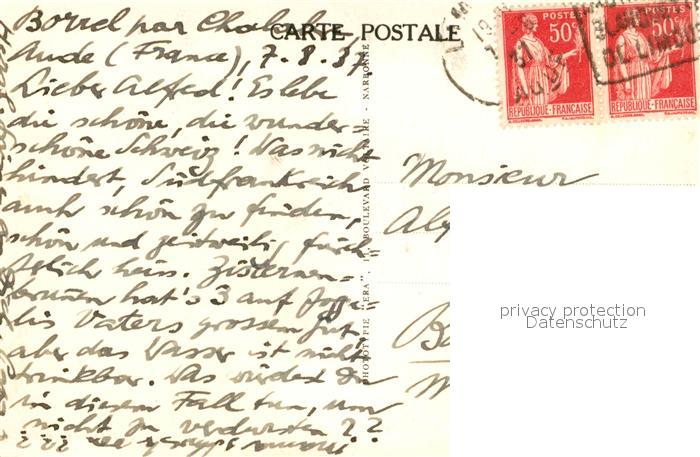 Borrel par Chalabre
CARTE POSTALE
Aude (France), 7.8.37
Lieber Alfred! Es lebe
die schöne, die wunder=
schöne Schweiz! Was nicht
hindert, Südfrankreich
auch schön zu finden,
schön und zeitweilig fürch
terlich heiss. Zisternen-
brunnen hat's 3 auf Jogge-
lis Vaters grossem Gut
aber das Wasser ist nicht
trinkbar. Was würdest Du
in diesem Fall tun, um
nicht zu verdursten ??
PHOTOTYPIE "ERA", BOULEVARD VOLTAIRE - NARBONNE
POSTES
50c
RÉPUBLIQUE-FRANÇAISE
POSTES
50c
RÉPUBLIQUE-FRANÇAISE
Monsieur
privacy protection
Datenschutz